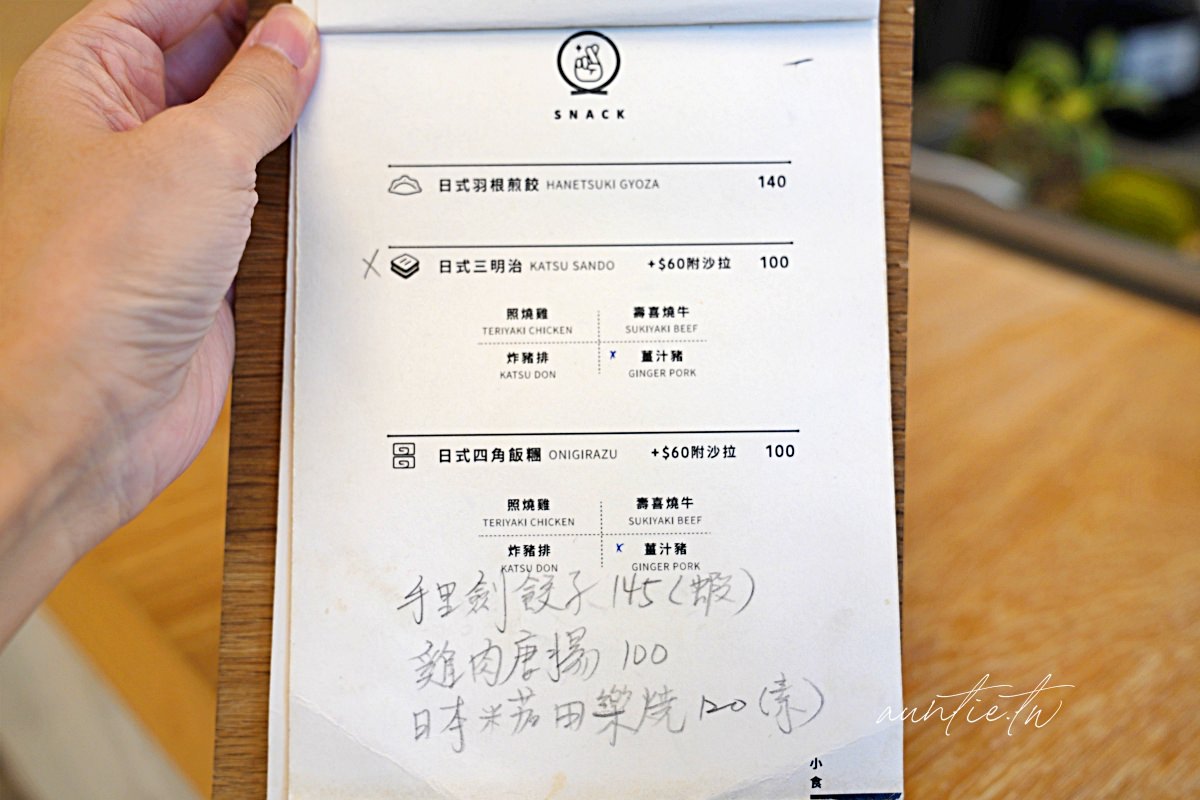 SNACK
日式羽根煎餃 HANETSUKI GYOZA 140
X 日式三明治 KATSU SANDO +$60附沙拉 100
照燒雞 壽喜燒牛
TERIYAKI CHICKEN SUKIYAKI BEEF
炸豬排 x 薑汁豬
KATSU DON GINGER PORK
日式四角飯糰 ONIGIRAZU +$60附沙拉 100
照燒雞 壽喜燒牛
TERIYAKI CHICKEN SUKIYAKI BEEF
炸豬排 x 薑汁豬
KATSU DON GINGER PORK
手里劍餃子 145(蝦)
雞肉唐揚 100
日本米茄田樂燒 120(素)
auntie.tw
小食